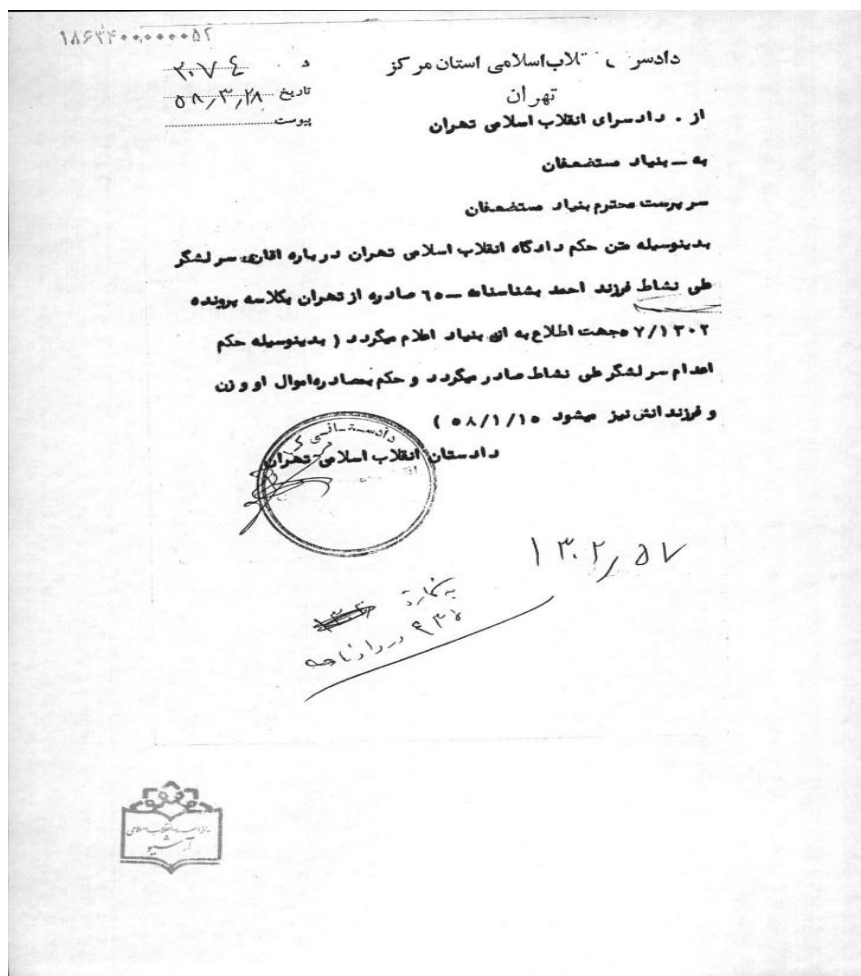 ۱۸۶۳۴۰۰۰۰۰۰۰۵۲
انقلاب اسلامی استان مرکز
تهران
۳۰۷۴
تاریخ ۵۸/۳/۲۸
پیوست
از . دادسرای انقلاب اسلامی تهران
به ــ بنیاد مستضعفان
سرپرست محترم بنیاد مستضعفان
بدینوسیله متن حکم دادگاه انقلاب اسلامی تهران درباره اقای سرلشگر
علی نشاط فرزند احمد بشناسنامه ــ ۶۵ صادره از تهران بکلاسه پرونده
جهت اطلاع به ان بنیاد اعلام میگردد ( بدینوسیله حکم
اعدام سرلشگر علی نشاط صادر میگردد و حکم بمصادره اموال او و زن
و فرزندانش نیز میشود ۵۸/۱/۱۵ )
دادستان انقلاب اسلامی تهران
۱۳۰۲٫۵۷
آرشیو